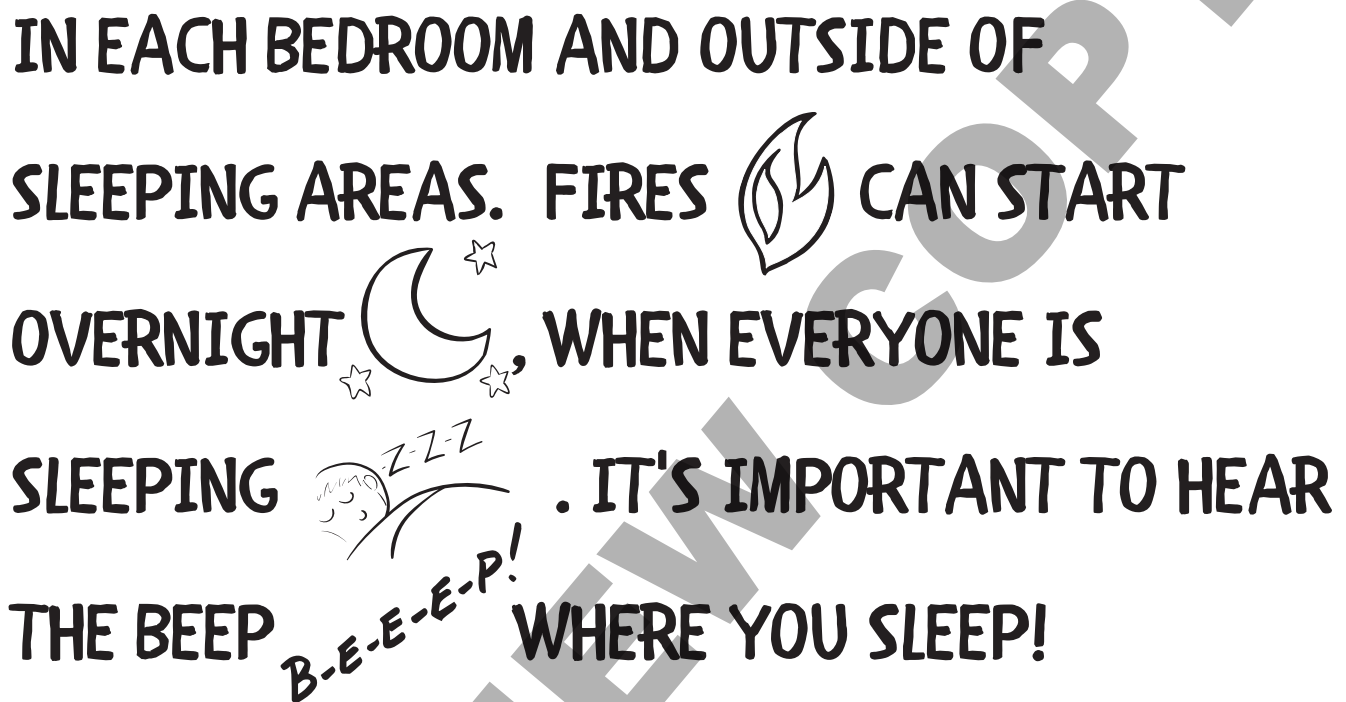 IN EACH BEDROOM AND OUTSIDE OF
SLEEPING AREAS. FIRES CAN START
OVERNIGHT, WHEN EVERYONE IS
Z-Z-Z
SLEEPING. IT'S IMPORTANT TO HEAR
THE BEEP B-E-E-E-P! WHERE YOU SLEEP!